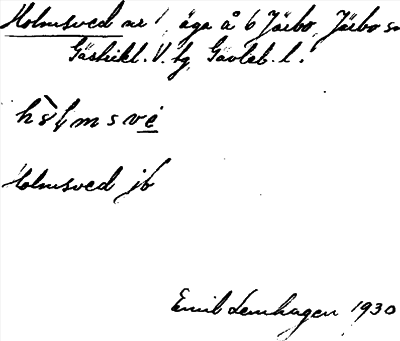 Holmsved nr 1, äga å 6 Järbo, Järbo sn
Gästrikl. V. tg Gävleb. l.
Holmsved jb
Emil Lenhagen 1930